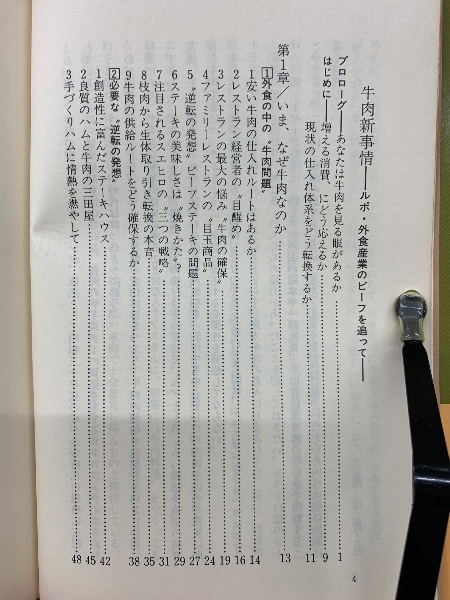 牛肉新事情――ルポ・外食産業のビーフを追って――
プロローグ――あなたは牛肉を見る眼があるか……1
はじめに――増える消費、にどう応えるか……9
現状の仕入れ体系をどう転換するか……11
第1章/いま、なぜ牛肉なのか……13
1 外食の中の〝牛肉問題〟
1 安い牛肉の仕入れルートはあるか……14
2 レストラン経営者の〝目醒め〟……16
3 レストランの最大の悩み〝牛肉の確保〟……19
4 ファミリーレストランの〝目玉商品〟……24
5 〝逆転の発想〟ビーフステーキの問題……27
6 ステーキの美味しさは〝焼きかた〟?……29
7 注目されるスエヒロの〝三つの戦略〟……31
8 枝肉から生体取り引き転換の本音……35
9 牛肉の供給ルートをどう確保するか……38
2 必要な〝逆転の発想〟
1 創造性に富んだステーキハウス……42
2 良質のハムと牛肉の三田屋……45
3 手づくりハムに情熱を燃やして……48
4